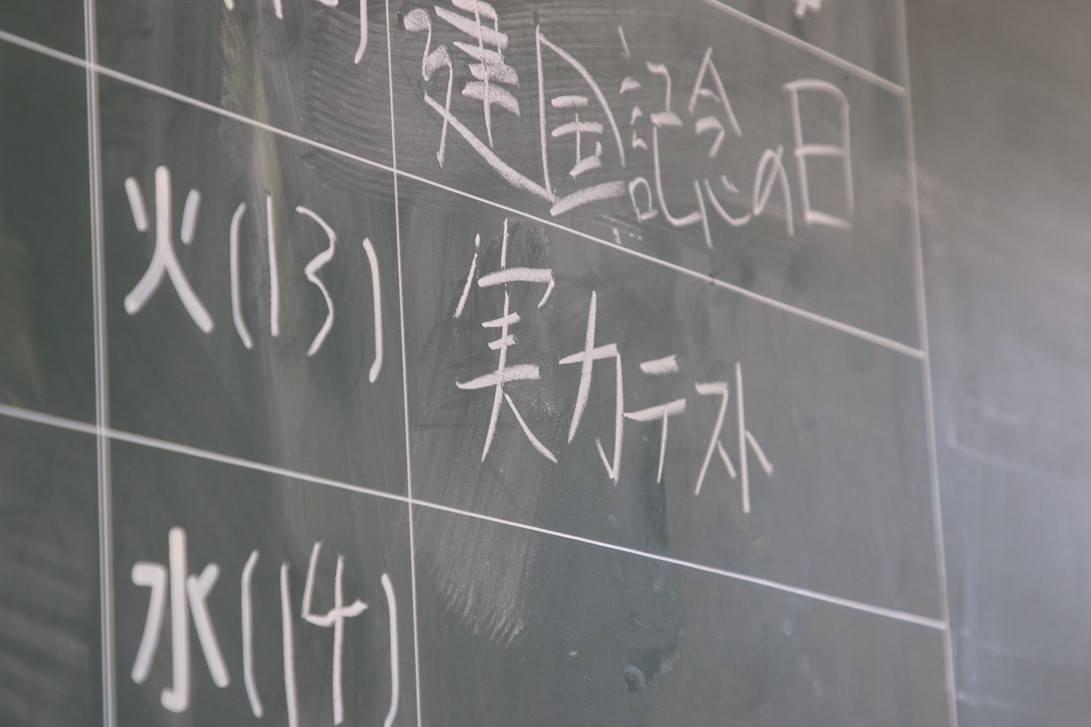 建国記念の日
火(13) 実力テスト
水(14)